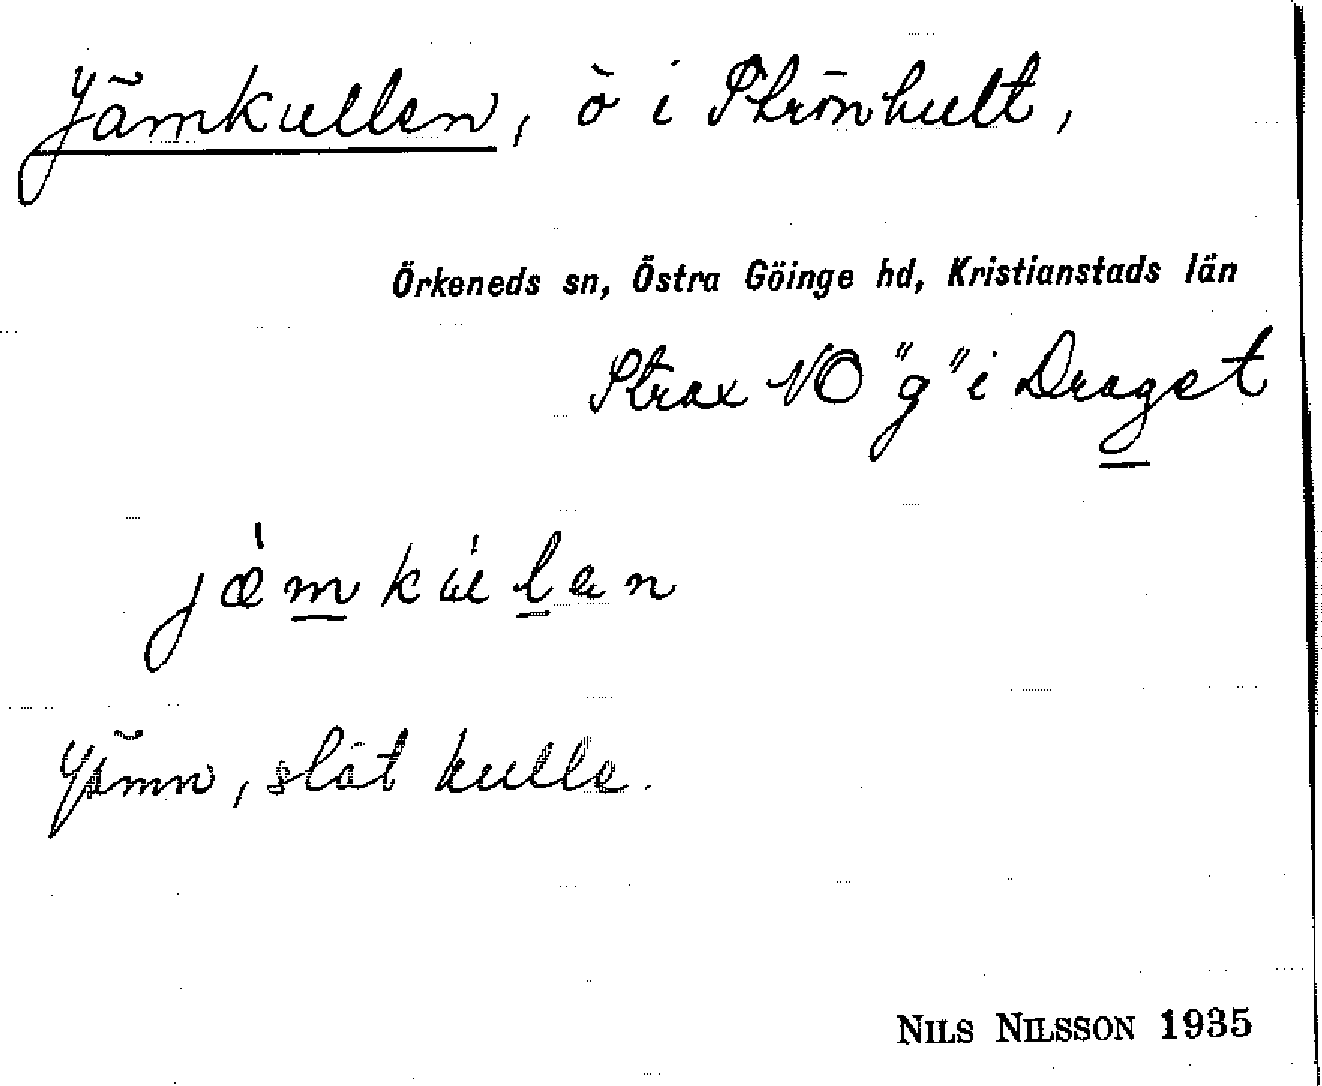 Jämkullen, ö i Strönhult,
Örkeneds sn, Östra Göinge hd, Kristianstads län
Strax NO "g" i Draget
jæ̀mkúlan
Jämn, slät kulle.
NILS NILSSON 1935